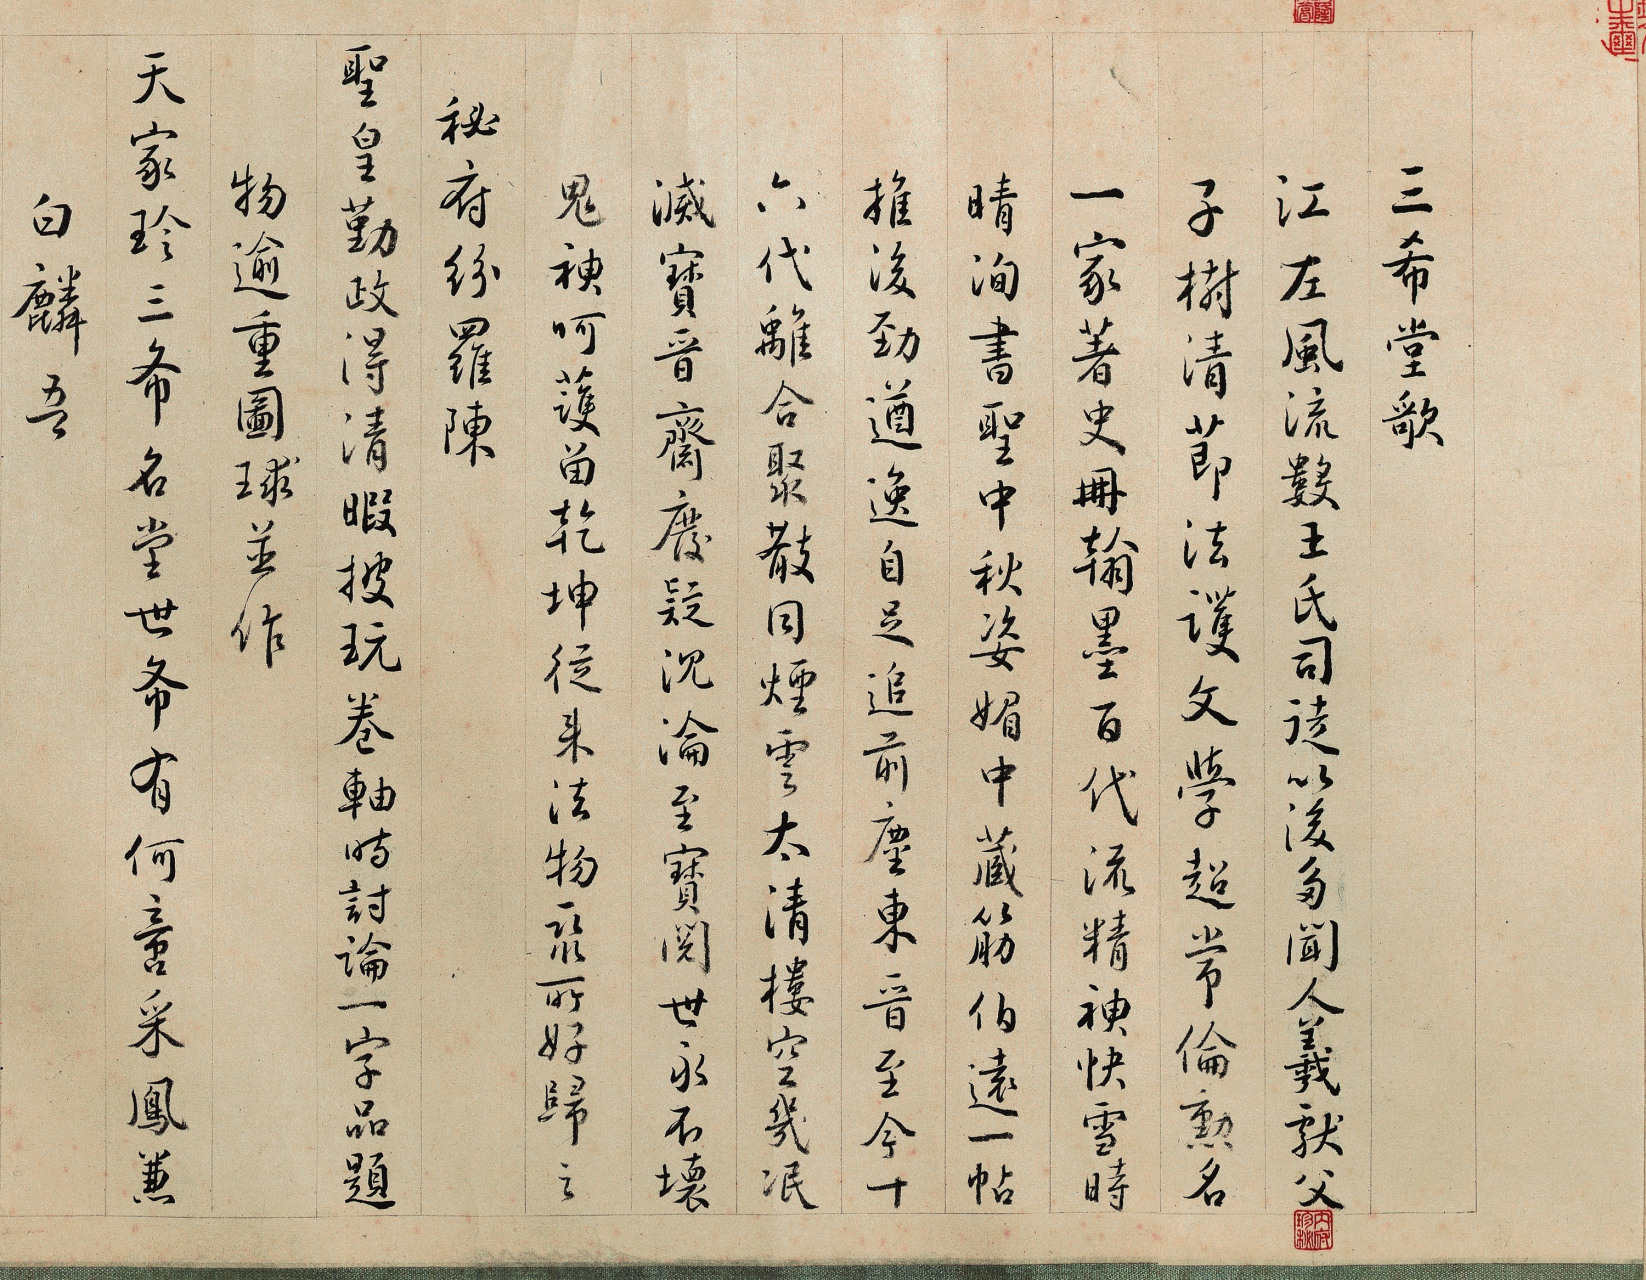 三希堂歌
江左風流數王氏司徒以後多聞人羲獻父
子樹清節法護文學超常倫勲名
一家著史冊翰墨百代流精神快雪時
晴洵書聖中秋姿媚中藏筋伯遠一帖
推後勁遒逸自足追前塵東晉至今十
六代離合聚散同煙雲太清樓空幾泯
滅寶晉齋廢疑沉淪至寶閱世永不壞
鬼神呵護留乾坤從來法物聚所好歸之
秘府紛羅陳
聖皇勤政得清暇披玩卷軸時討論一字品題
物逾重圖球並作
天家珍三希名堂世希有何啻采鳳兼
白麟吾